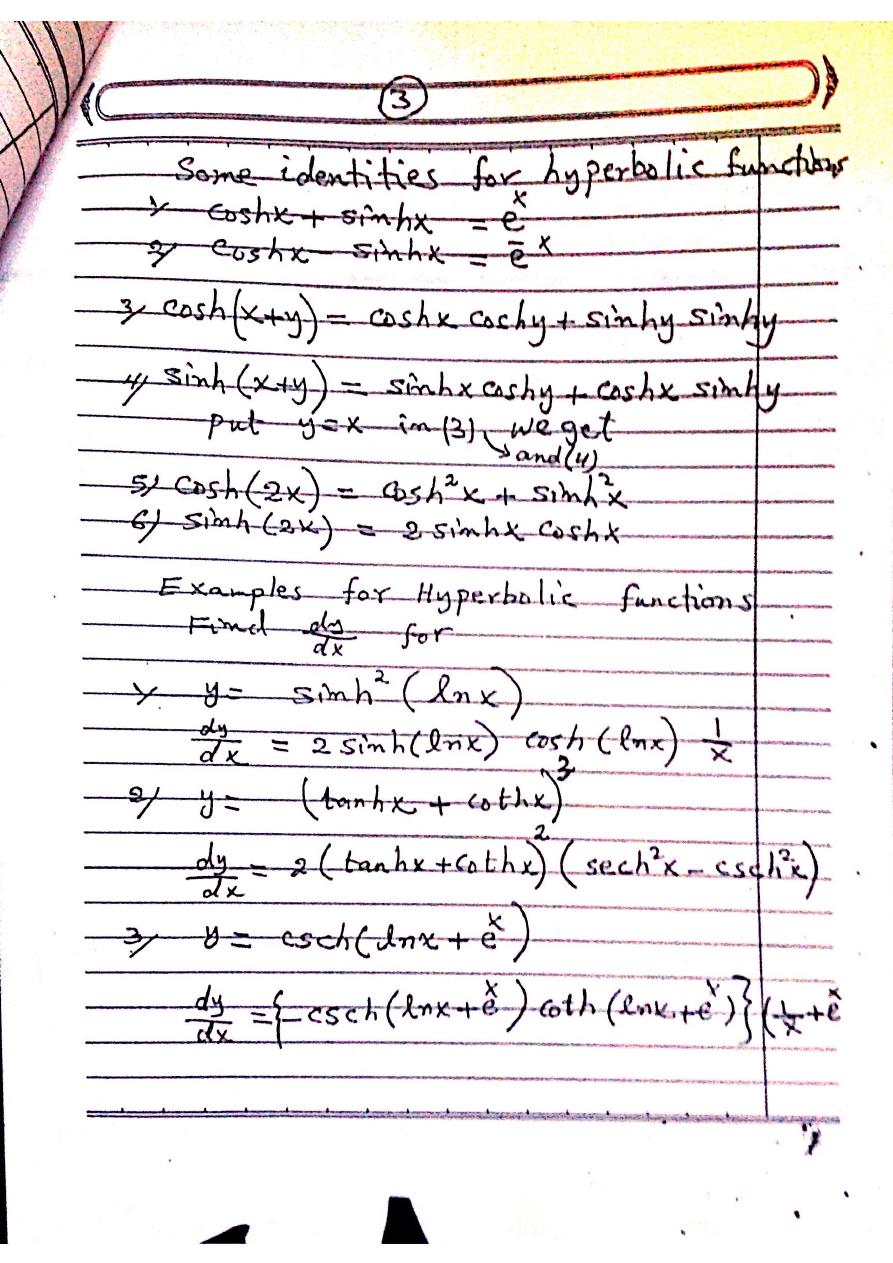 3
Some identities for hyperbolic functions
1/ coshx + sinhx = e^x
2/ coshx - sinhx = e^-x
3/ cosh(x+y) = coshx coshy + sinhy sinhy
4/ sinh(x+y) = sinhx coshy + coshx sinhy
put y=x in (3), we get
and (4)
5/ cosh(2x) = cosh²x + sinh²x
6/ sinh(2x) = 2 sinhx coshx
Examples for Hyperbolic functions
Find dy/dx for
1/ y = sinh²(lnx)
dy/dx = 2 sinh(lnx) cosh(lnx) 1/x
2/ y = (tanhx + cothx)³
dy/dx = 2(tanhx + cothx)² (sech²x - csch²x)
3/ y = csch(lnx + e^x)
dy/dx = {-csch(lnx + e^x) coth(lnx + e^x)} (1/x + e^x